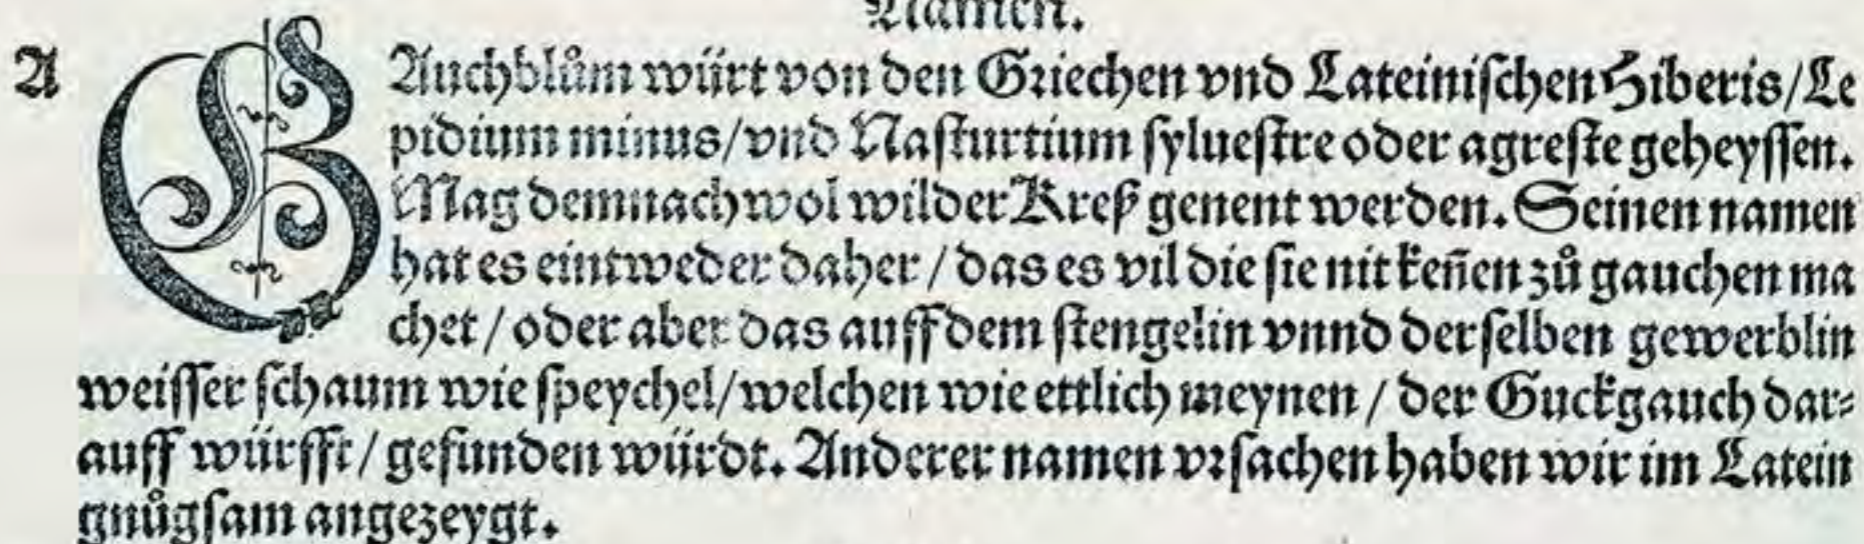 Namen.
A GAuchblům würt von den Griechen vnd Lateinischen Hiberis/Le
pidium minus/vnd Nasturtium syluestre oder agreste geheyssen.
Mag demnach wol wilder Kreß genent werden. Seinen namen
hat es eintweder daher / das es vil die sie nit keñen zů gauchen ma
chet / oder aber das auff dem stengelin vnnd derselben gewerblin
weisser schaum wie speychel/welchen wie ettlich meynen / der Guckgauch dar⸗
auff würfft/ gefunden würdt. Anderer namen vrsachen haben wir im Latein
gnůgsam angezeygt.